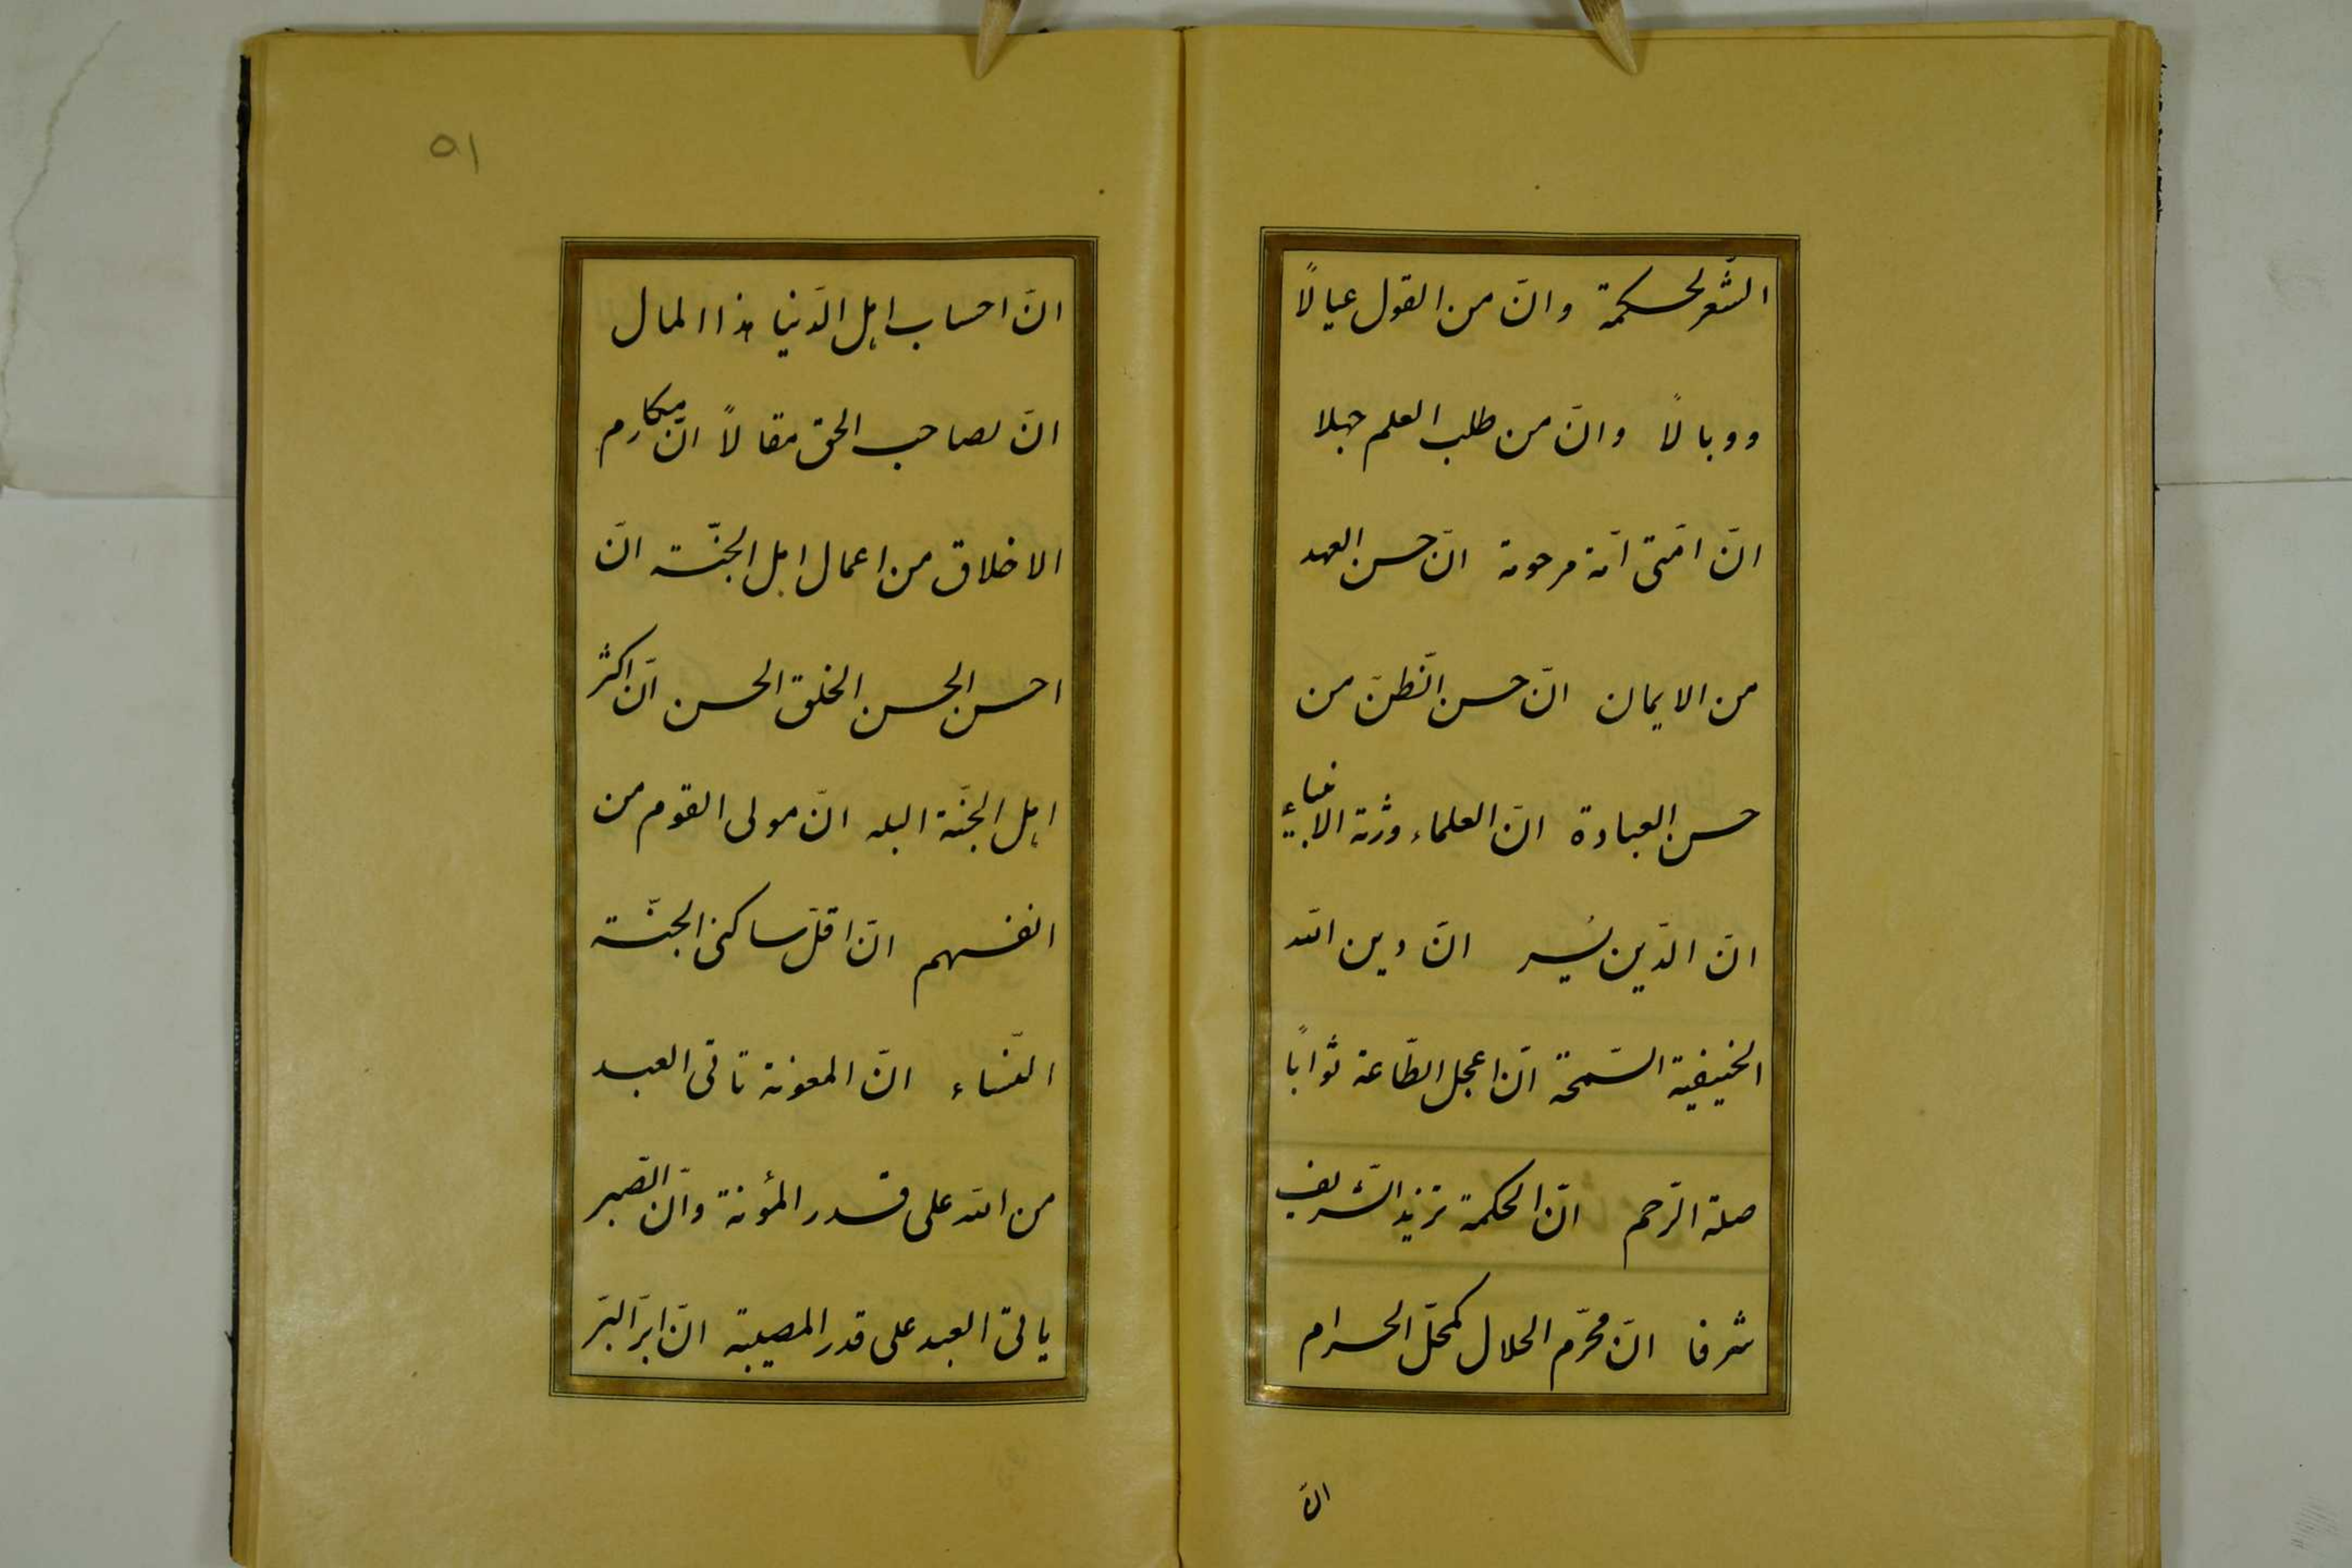 الشّعر لحكمة وانّ من القول عيالاً
ووبالاً وانّ من طلب العلم جهلا
انّ امّتى امّة مرحومة انّ حسن العهد
من الايمان انّ حسن الظنّ من
حسن العبادة انّ العلماء ورثة الانبياء
انّ الدّين يُسر انّ دين الله
الحنيفية السّمحة انّ اعجل الطّاعة ثواباً
صلة الرّحم انّ الحكمة تزيد الشّريف
شرفا انّ محرّم الحلال كمحلّ الحرام
انّ
٥١
انّ احساب اهل الدّنيا هذا المال
انّ لصاحب الحق مقالاً انّ مكارم
الاخلاق من اعمال اهل الجنّة انّ
احسن الحسن الخلق الحسن انّ اكثر
اهل الجنّة البله انّ مولى القوم من
انفسهم انّ اقلّ ساكنى الجنّة
النّساء انّ المعونة تاتى العبد
من الله على قدر المؤنة وانّ الصّبر
ياتى العبد على قدر المصيبة انّ ابرّ البرّ